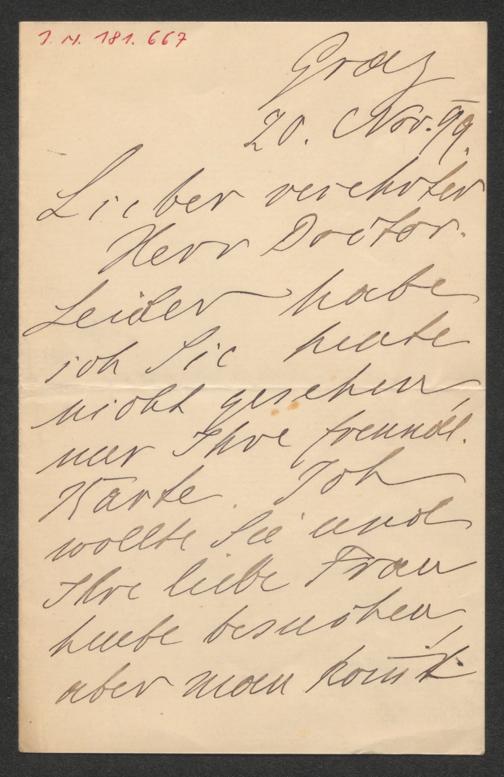 I. N. 181.667
Graz
20. Nov. 99.
Lieber verehrter
Herr Doctor.
Leider habe
ich Sie heute
nicht gesehen,
nur Ihre freundl.
Karte. Ich
wollte Sie und
Ihre liebe Frau
heute besuchen,
aber man kom̄t